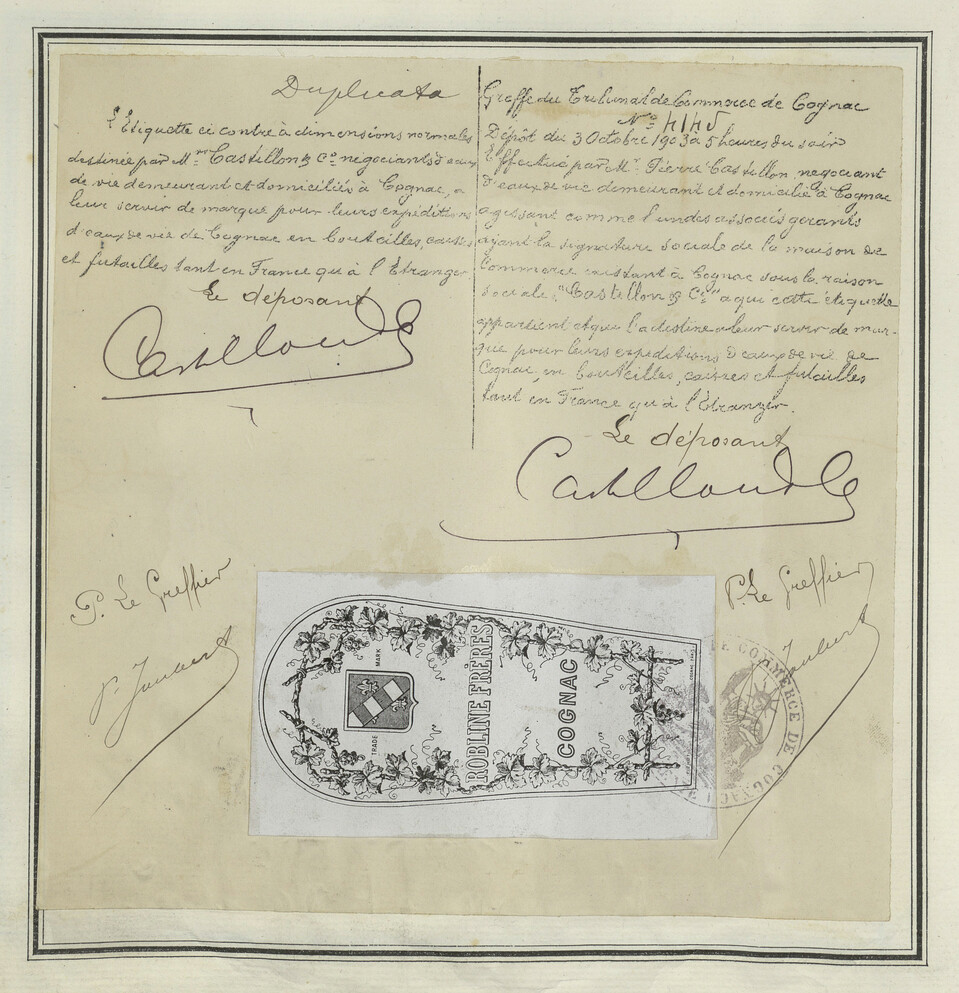 Duplicata
L'Etiquette ci contre à dimensions normales
destinée par Mrs Castillon & Ce negociants d'eaux
de vie demeurant et domiciliés à Cognac, a
leur servir de marque pour leurs expéditions
d'eaux de vie de Cognac en bouteilles, caisses
et futailles tant en France qu'à l'Etranger
Le déposant
Castillon & Ce
Greffe du Tribunal de Commerce de Cognac
No 4145
Dépôt du 3 Octobre 1903 à 5 heures du soir
Effectué par Mr Pierre Castillon negociant
d'eaux de vie demeurant et domicilié à Cognac
agissant comme l'un des associés gerants
ayant la signature sociale de la maison de
Commerce existant à Cognac sous la raison
sociale, "Castillon & Ce" a qui cette étiquette
appartient et qui l'a destine a leur servir de mar-
que pour leurs expeditions d'eaux de vie de
Cognac, en bouteilles, caisses et futailles
tant en France qu'à l'Etranger.
Le déposant
Castillon & Ce
P. Le Greffier
P. Le Greffier
TRADE MARK
ROBLINE FRÈRES
COGNAC
DE COMMERCE DE COGNAC